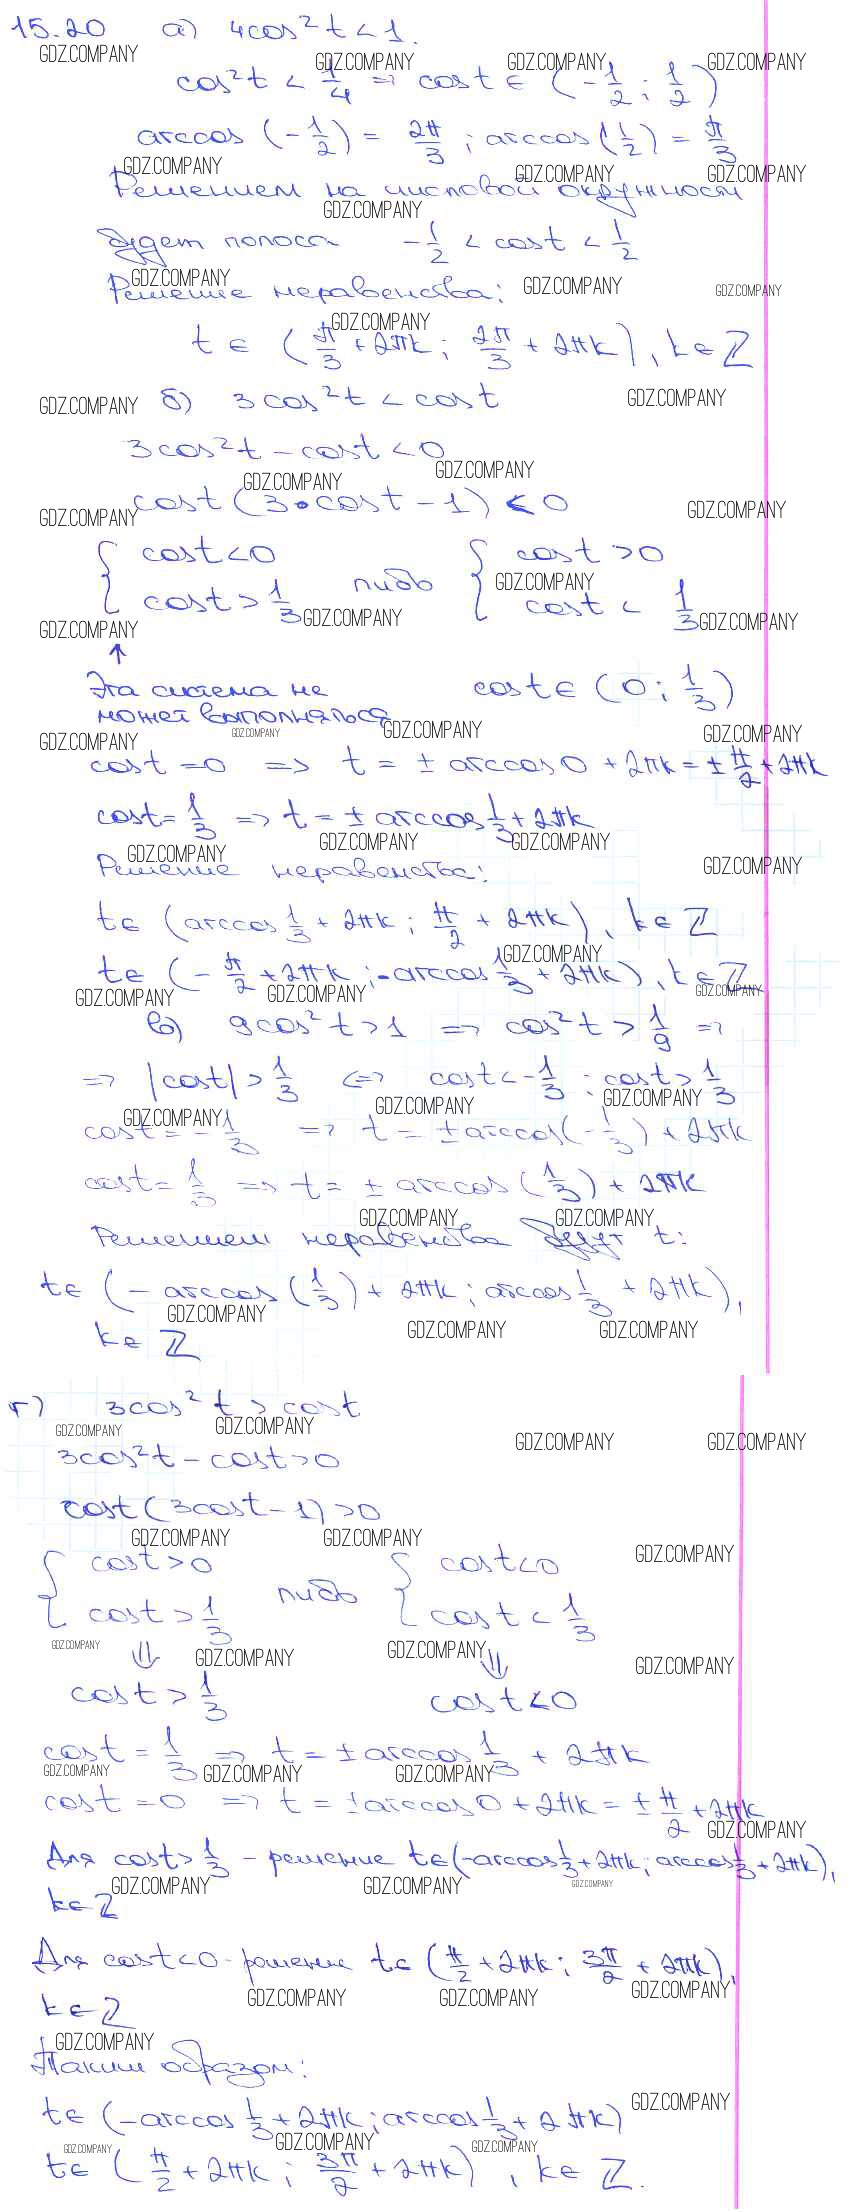 15.20 а) 4cos²t < 1.
cos²t < 1/4 => cost ∈ (-1/2; 1/2)
arccos(-1/2) = 2π/3; arccos(1/2) = π/3
Решением на числовой окружности
будет полоса -1/2 < cost < 1/2
Решение неравенства:
t ∈ (π/3 + 2πk; 2π/3 + 2πk), k ∈ Z
б) 3cos²t < cost
3cos²t - cost < 0
cost(3·cost - 1) < 0
{ cost < 0 либо { cost > 0
cost > 1/3 cost < 1/3
↑
Эта система не cost ∈ (0; 1/3)
может выполняться
cost = 0 => t = ± arccos 0 + 2πk = ± π/2 + 2πk
cost = 1/3 => t = ± arccos 1/3 + 2πk
Решение неравенства:
t ∈ (arccos 1/3 + 2πk; π/2 + 2πk), k ∈ Z
t ∈ (-π/2 + 2πk; -arccos 1/3 + 2πk), k ∈ Z
в) 9cos²t > 1 => cos²t > 1/9 =>
=> |cost| > 1/3 <=> cost < -1/3; cost > 1/3
cost = -1/3 => t = ± arccos(-1/3) + 2πk
cost = 1/3 => t = ± arccos(1/3) + 2πk
Решением неравенства будут t:
t ∈ (-arccos(1/3) + 2πk; arccos 1/3 + 2πk),
k ∈ Z
г) 3cos²t > cost
3cos²t - cost > 0
cost(3cost - 1) > 0
{ cost > 0 либо { cost < 0
cost > 1/3 cost < 1/3
⇓ ⇓
cost > 1/3 cost < 0
cost = 1/3 => t = ± arccos 1/3 + 2πk
cost = 0 => t = ± arccos 0 + 2πk = ± π/2 + 2πk
Для cost > 1/3 - решение t ∈ (-arccos 1/3 + 2πk; arccos 1/3 + 2πk),
k ∈ Z
Для cost < 0 - решение t ∈ (π/2 + 2πk; 3π/2 + 2πk),
k ∈ Z
Таким образом:
t ∈ (-arccos 1/3 + 2πk; arccos 1/3 + 2πk)
t ∈ (π/2 + 2πk; 3π/2 + 2πk), k ∈ Z.
GDZ.COMPANY